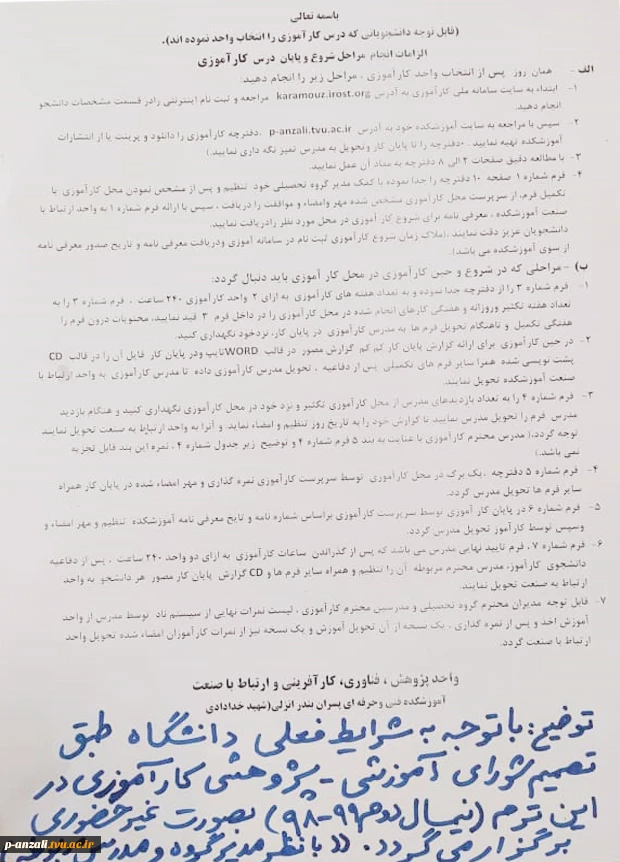 باسمه تعالی
(قابل توجه دانشجویانی که درس کارآموزی را انتخاب واحد نموده اند).
الزامات انجام مراحل شروع و پایان درس کارآموزی
الف - همان روز پس از انتخاب واحد کارآموزی ، مراحل زیر را انجام دهید:
۱- ابتداء به سایت سامانه ملی کارآموزی به آدرس karamouz.irost.org مراجعه و ثبت نام اینترنتی را در قسمت مشخصات دانشجو
انجام دهید.
۲- سپس با مراجعه به سایت آموزشکده خود به آدرس p-anzali.tvu.ac.ir ،دفترچه کارآموزی را دانلود و پرینت یا از انتشارات
آموزشکده تهیه نمایید . «دفترچه را تا پایان کار وتحویل به مدرس تمیز نگه داری نمایید.)
۳- با مطالعه دقیق صفحات ۲ الی ۸ دفترچه به مفاد آن عمل نمایید.
۴- فرم شماره ۱ صفحه ۱۰ دفترچه را جدا نموده با کمک مدیر گروه تحصیلی خود تنظیم و پس از مشخص نمودن محل کارآموزی با
تکمیل فرم، از سرپرست محل کارآموزی مشخص شده مهر وامضاء و موافقت را دریافت ، سپس با ارائه فرم شماره ۱ به واحد ارتباط با
صنعت آموزشکده ، معرفی نامه برای شروع کار آموزی در محل مورد نظر رادریافت نمایید.
دانشجویان عزیز دقت نمایند ،(ملاک زمان شروع کارآموزی ثبت نام در سامانه آموزی ودریافت معرفی نامه و تاریخ صدور معرفی نامه
از سوی آموزشکده می باشد).
ب) - مراحلی که در شروع و حین کارآموزی در محل کار آموزی باید دنبال گردد:
۱- فرم شماره ۳ را از دفترچه جدا نموده و به تعداد هفته های کارآموزی به ازای ۲ واحد کارآموزی ۲۴۰ ساعت ، فرم شماره ۳ را به
تعداد هفته تکثیر وروزانه و هفتگی کارهای انجام شده در محل کارآموزی را در داخل فرم ۳ قید نمایید، محتویات درون فرم را
هفتگی تکمیل و تاهنگام تحویل فرم ها به مدرس کارآموزی در پایان کار، نزدخود نگهداری کنید.
۲- در حین کارآموزی برای ارائه گزارش پایان کار کم کم گزارش مصور در قالب WORDتایپ ودر پایان کار فایل آن را در قالب CD
پشت نویسی شده همرا سایر فرم های تکمیلی پس از دفاعیه ، تحویل مدرس کارآموزی داده تا مدرس کارآموزی به واحد ارتباط با
صنعت آموزشکده تحویل نمایند.
۳- فرم شماره ۴ را به تعداد بازدیدهای مدرس از محل کارآموزی تکثیر و نزد خود در محل کارآموزی نگهداری کنید و هنگام بازدید
مدرس فرم را تحویل مدرس نمایید تا گزارش خود را به تاریخ روز تنظیم و امضاء نماید. و آنرا به واحد ارتباط به صنعت تحویل نمایند
توجه گردد،( مدرس محترم کارآموزی با عنایت به بند ۵ فرم شماره ۴ و توضیح زیر جدول شماره ۴ ، نمره این بند قابل تجزیه
نمی باشد.)
۴- فرم شماره ۵ دفترچه ،یک برگ در محل کارآموزی توسط سرپرست کارآموزی نمره گذاری و مهر امضاء شده در پایان کار همراه
سایر فرم ها تحویل مدرس گردد.
۵- فرم شماره ۶ در پایان کار آموزی توسط سرپرست کارآموزی براساس شماره نامه و تایخ معرفی نامه آموزشکده تنظیم و مهر امضاء و
وسپس توسط کارآموز تحویل مدرس گردد.
۶- فرم شماره ۷ ، فرم تایید نهایی مدرس می باشد که پس از گذراندن ساعات کارآموزی به ازای دو واحد ۲۴۰ ساعت ، پس از دفاعیه
دانشجوی کارآموز، مدرس محترم مربوطه آن را تنظیم و همراه سایر فرم ها و CD گزارش پایان کار مصور هر دانشجو به واحد
ارتباط به صنعت تحویل نمایند.
۷- قابل توجه مدیران محترم گروه تحصیلی و مدرسین محترم کارآموزی ، لیست نمرات نهایی از سیستم ناد توسط مدرس از واحد
آموزش اخذ و پس از نمره گذاری ، یک نسخه از آن تحویل آموزش و یک نسخه نیز از نمرات کارآموزان امضاء شده تحویل واحد
ارتباط با صنعت گردد.
واحد پژوهش ، فناوری، کارآفرینی و ارتباط با صنعت
آموزشکده فنی وحرفه ای پسران بندر انزلی(شهید خدادادی
توضیح: با توجه به شرایط فعلی دانشگاه طبق
تصمیم شورای آموزشی - پژوهشی کارآموزی در
این ترم (نیمسال دوم ۹۹-۹۸) بصورت غیر حضوری
برگزار می گردد. «با نظر مدیر گروه و مدرس
p-anzali.tvu.ac.ir